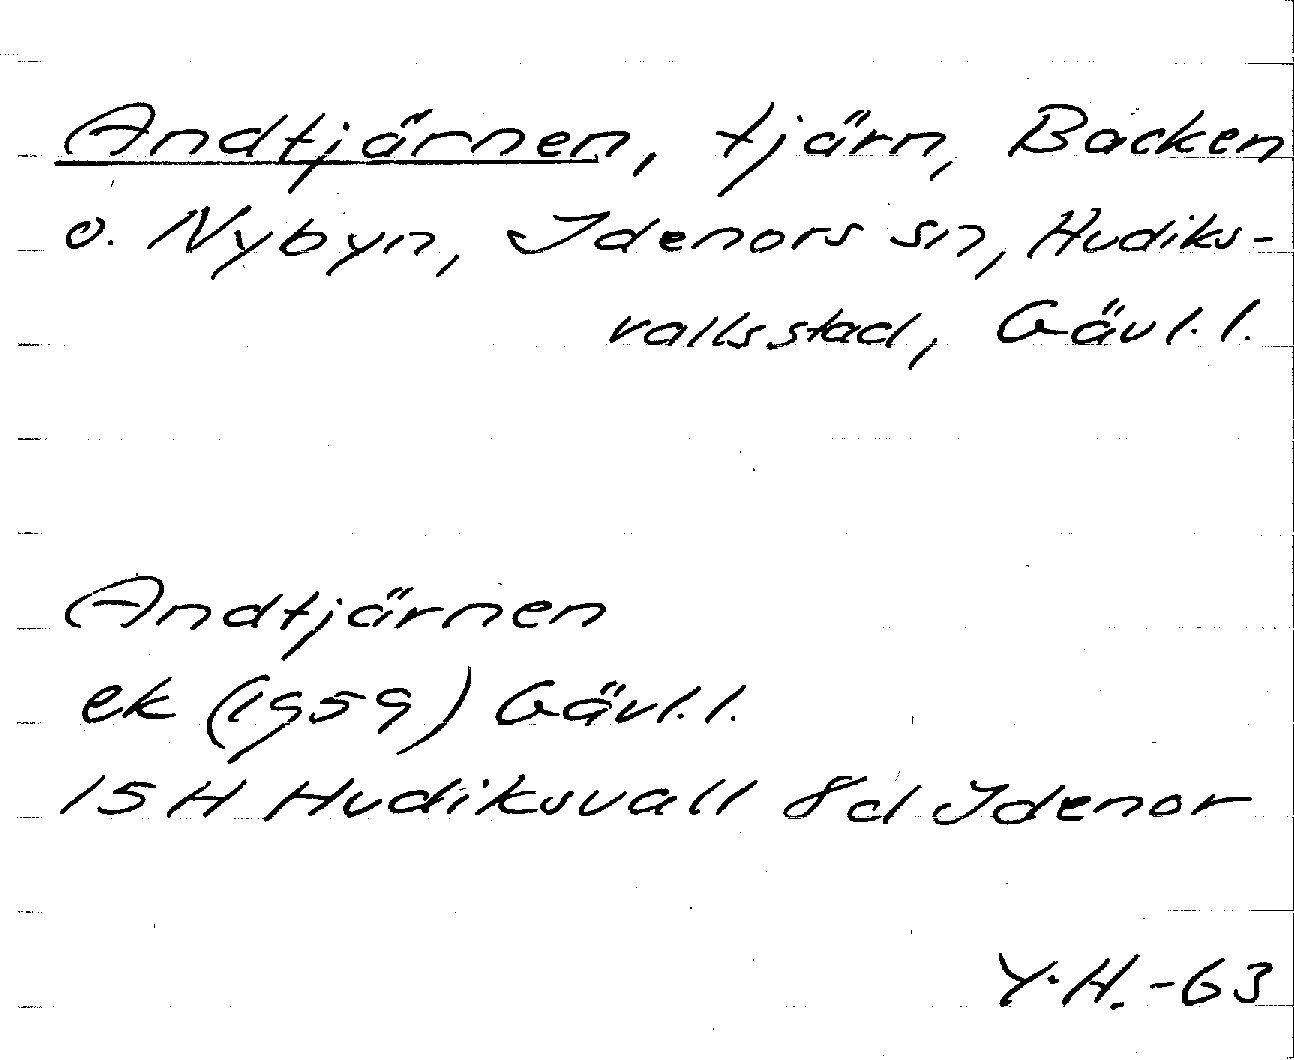 Andtjärnen, tjärn, Backen
o. Nybyn, Idenors sn, Hudiks-
vallsstad, Gävl.l.
Andtjärnen
ek (1959) Gävl.l.
15 H Hudiksvall 8d Idenor
Y.H.-63